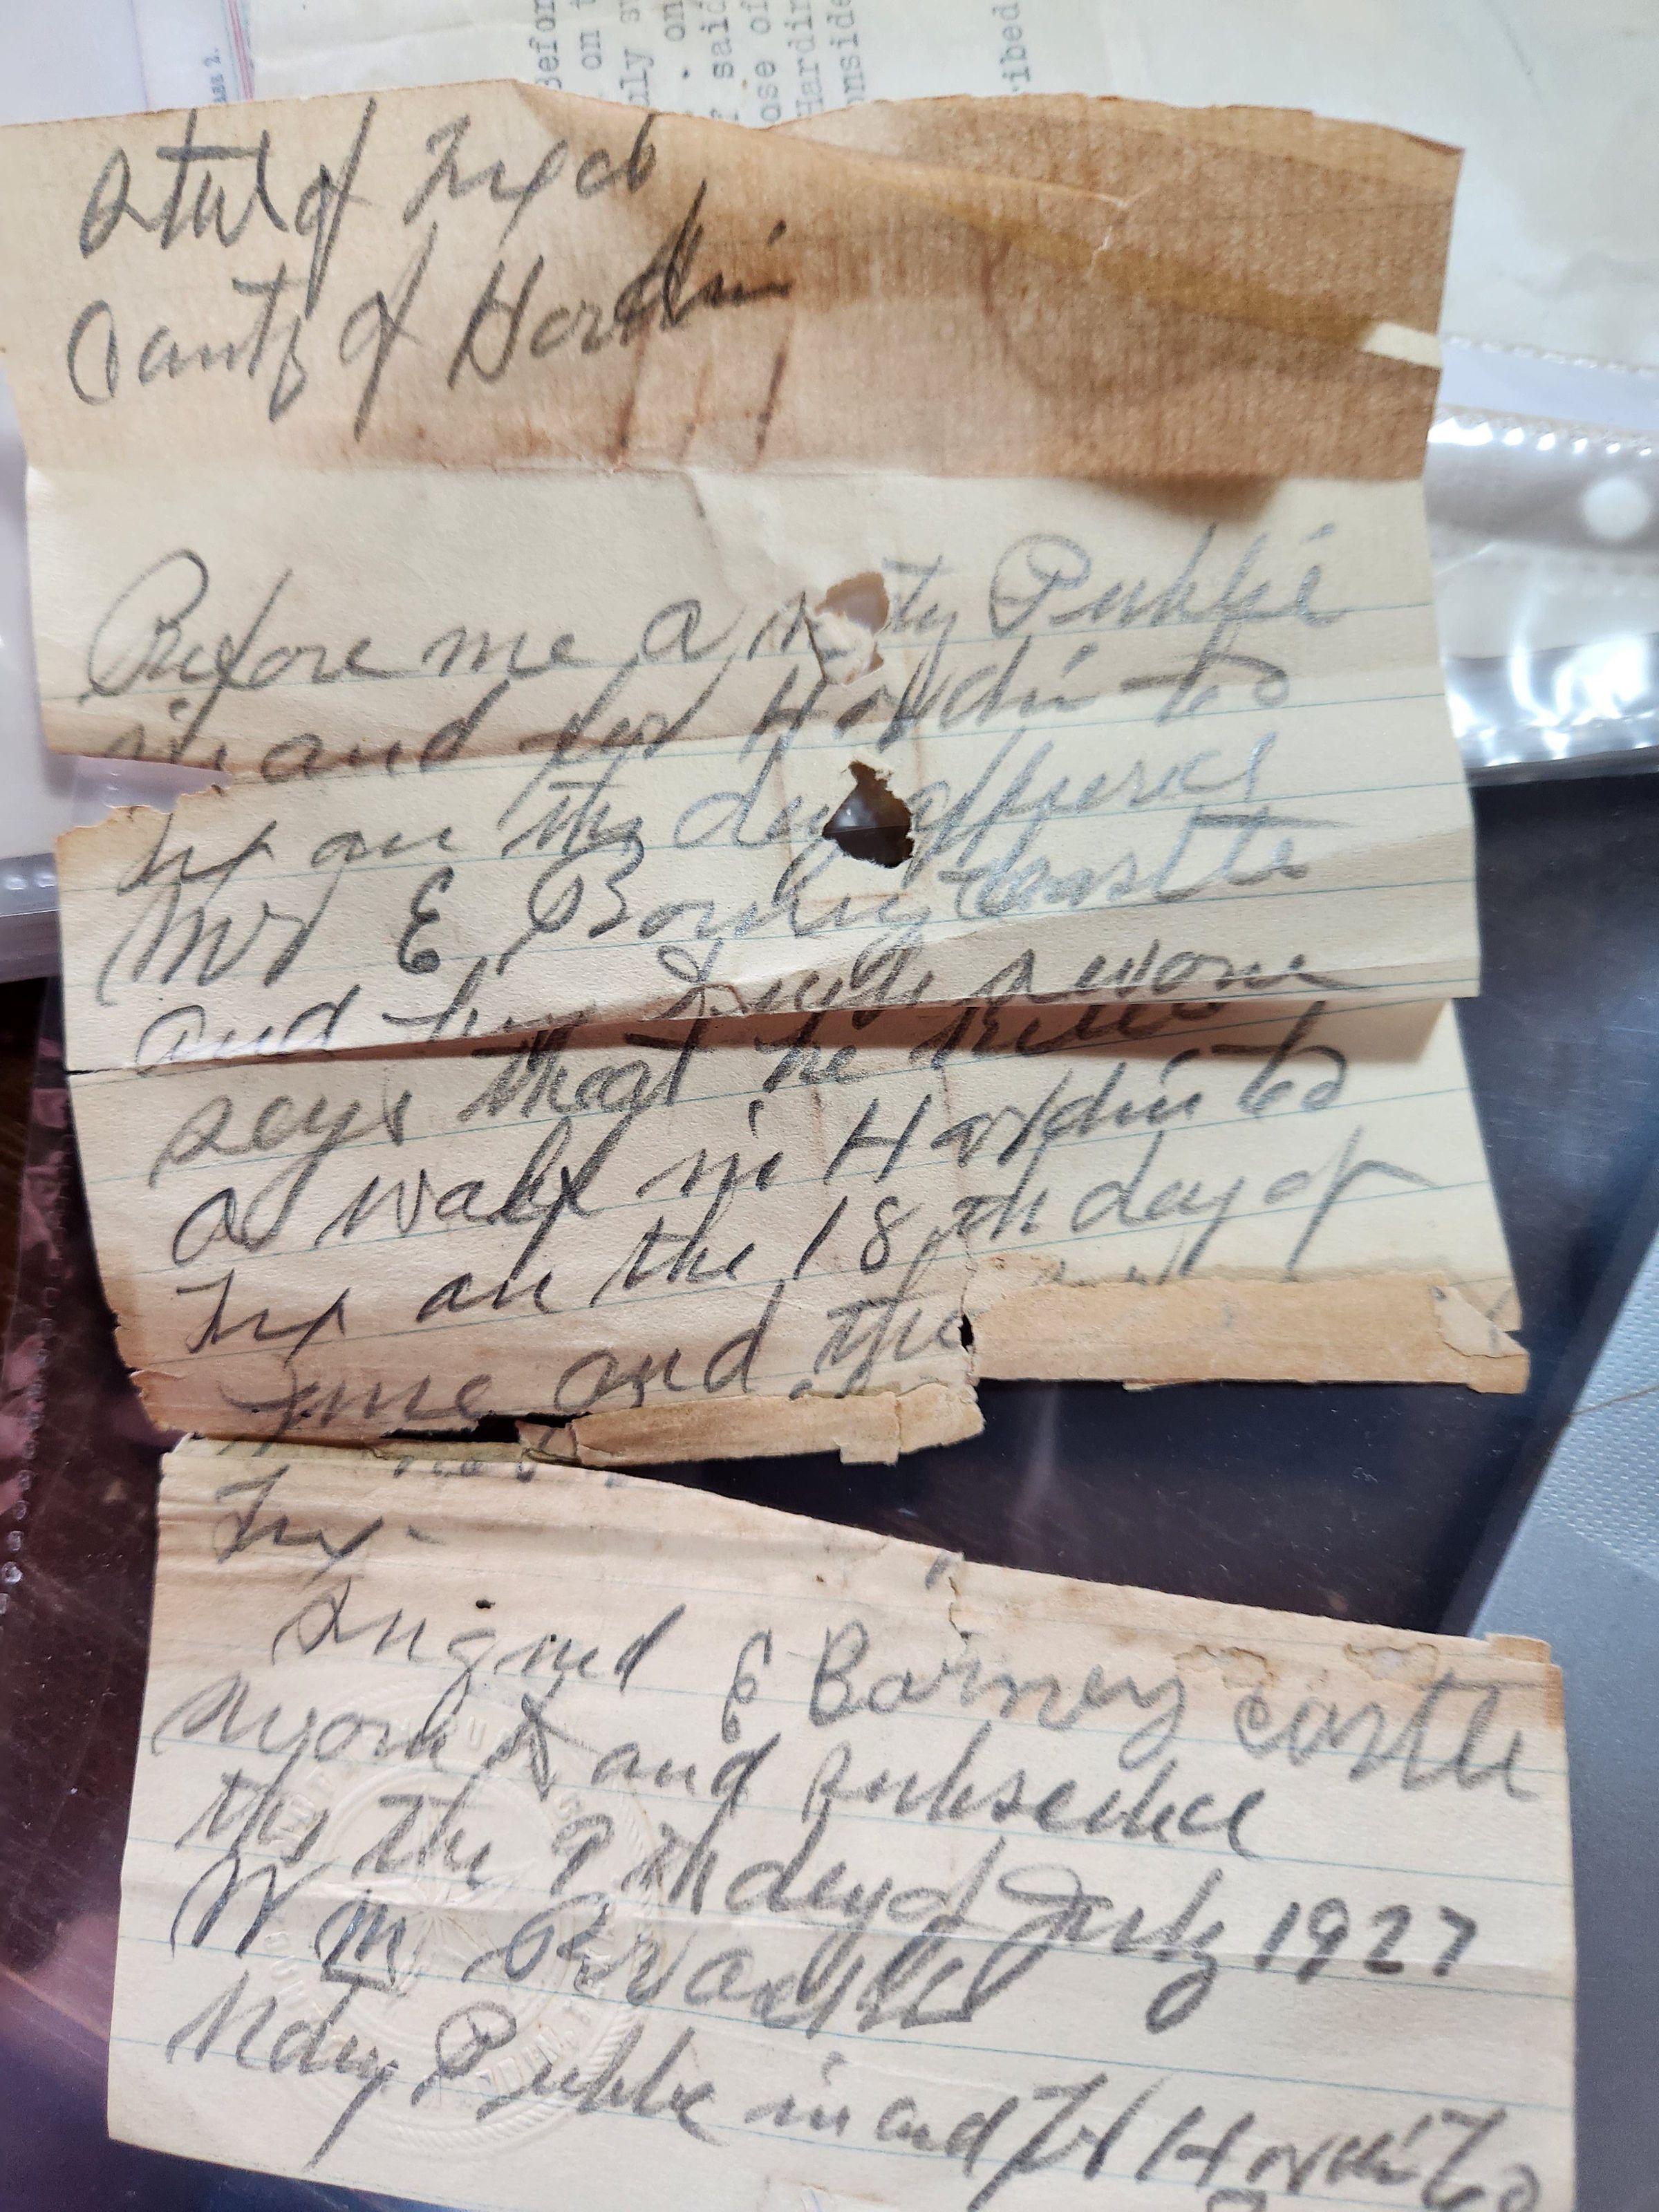 Before
on t
uly sw
on
said
ose of
Hardin
onside
ribed
State of Texas
County of Hardin
Before me a Noty Public
in and for Hardin Co
Tex on this day appears
Mr E Barney Castle
and being duly sworn
says that he killed
a wolf in Hardin Co
Tex on the 18th day of
June and the
Tex
Signed E Barney Castle
Sworn to and subscribe
this the 9th day of July 1927
Wm
Notary Public in and for Hardin Co